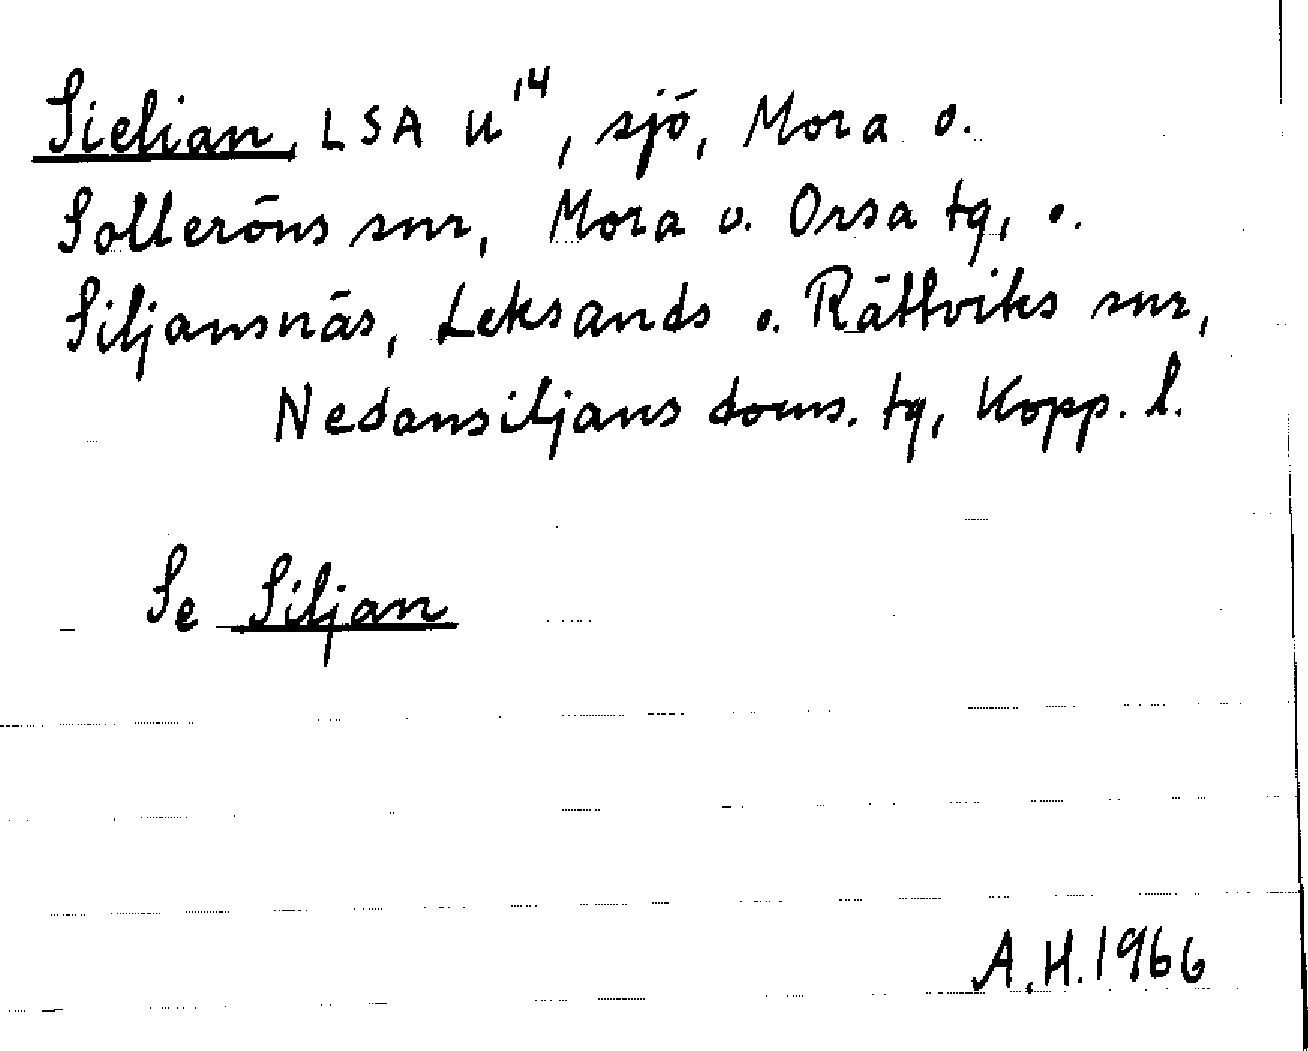 Sielian, LSA U¹⁴, sjö, Mora o.
Solleröns snr, Mora o. Orsa tg, o.
Siljansnäs, Leksands o. Rättviks snr,
Nedansiljans doms. tg, Kopp. l.
Se Siljan
A.H. 1966